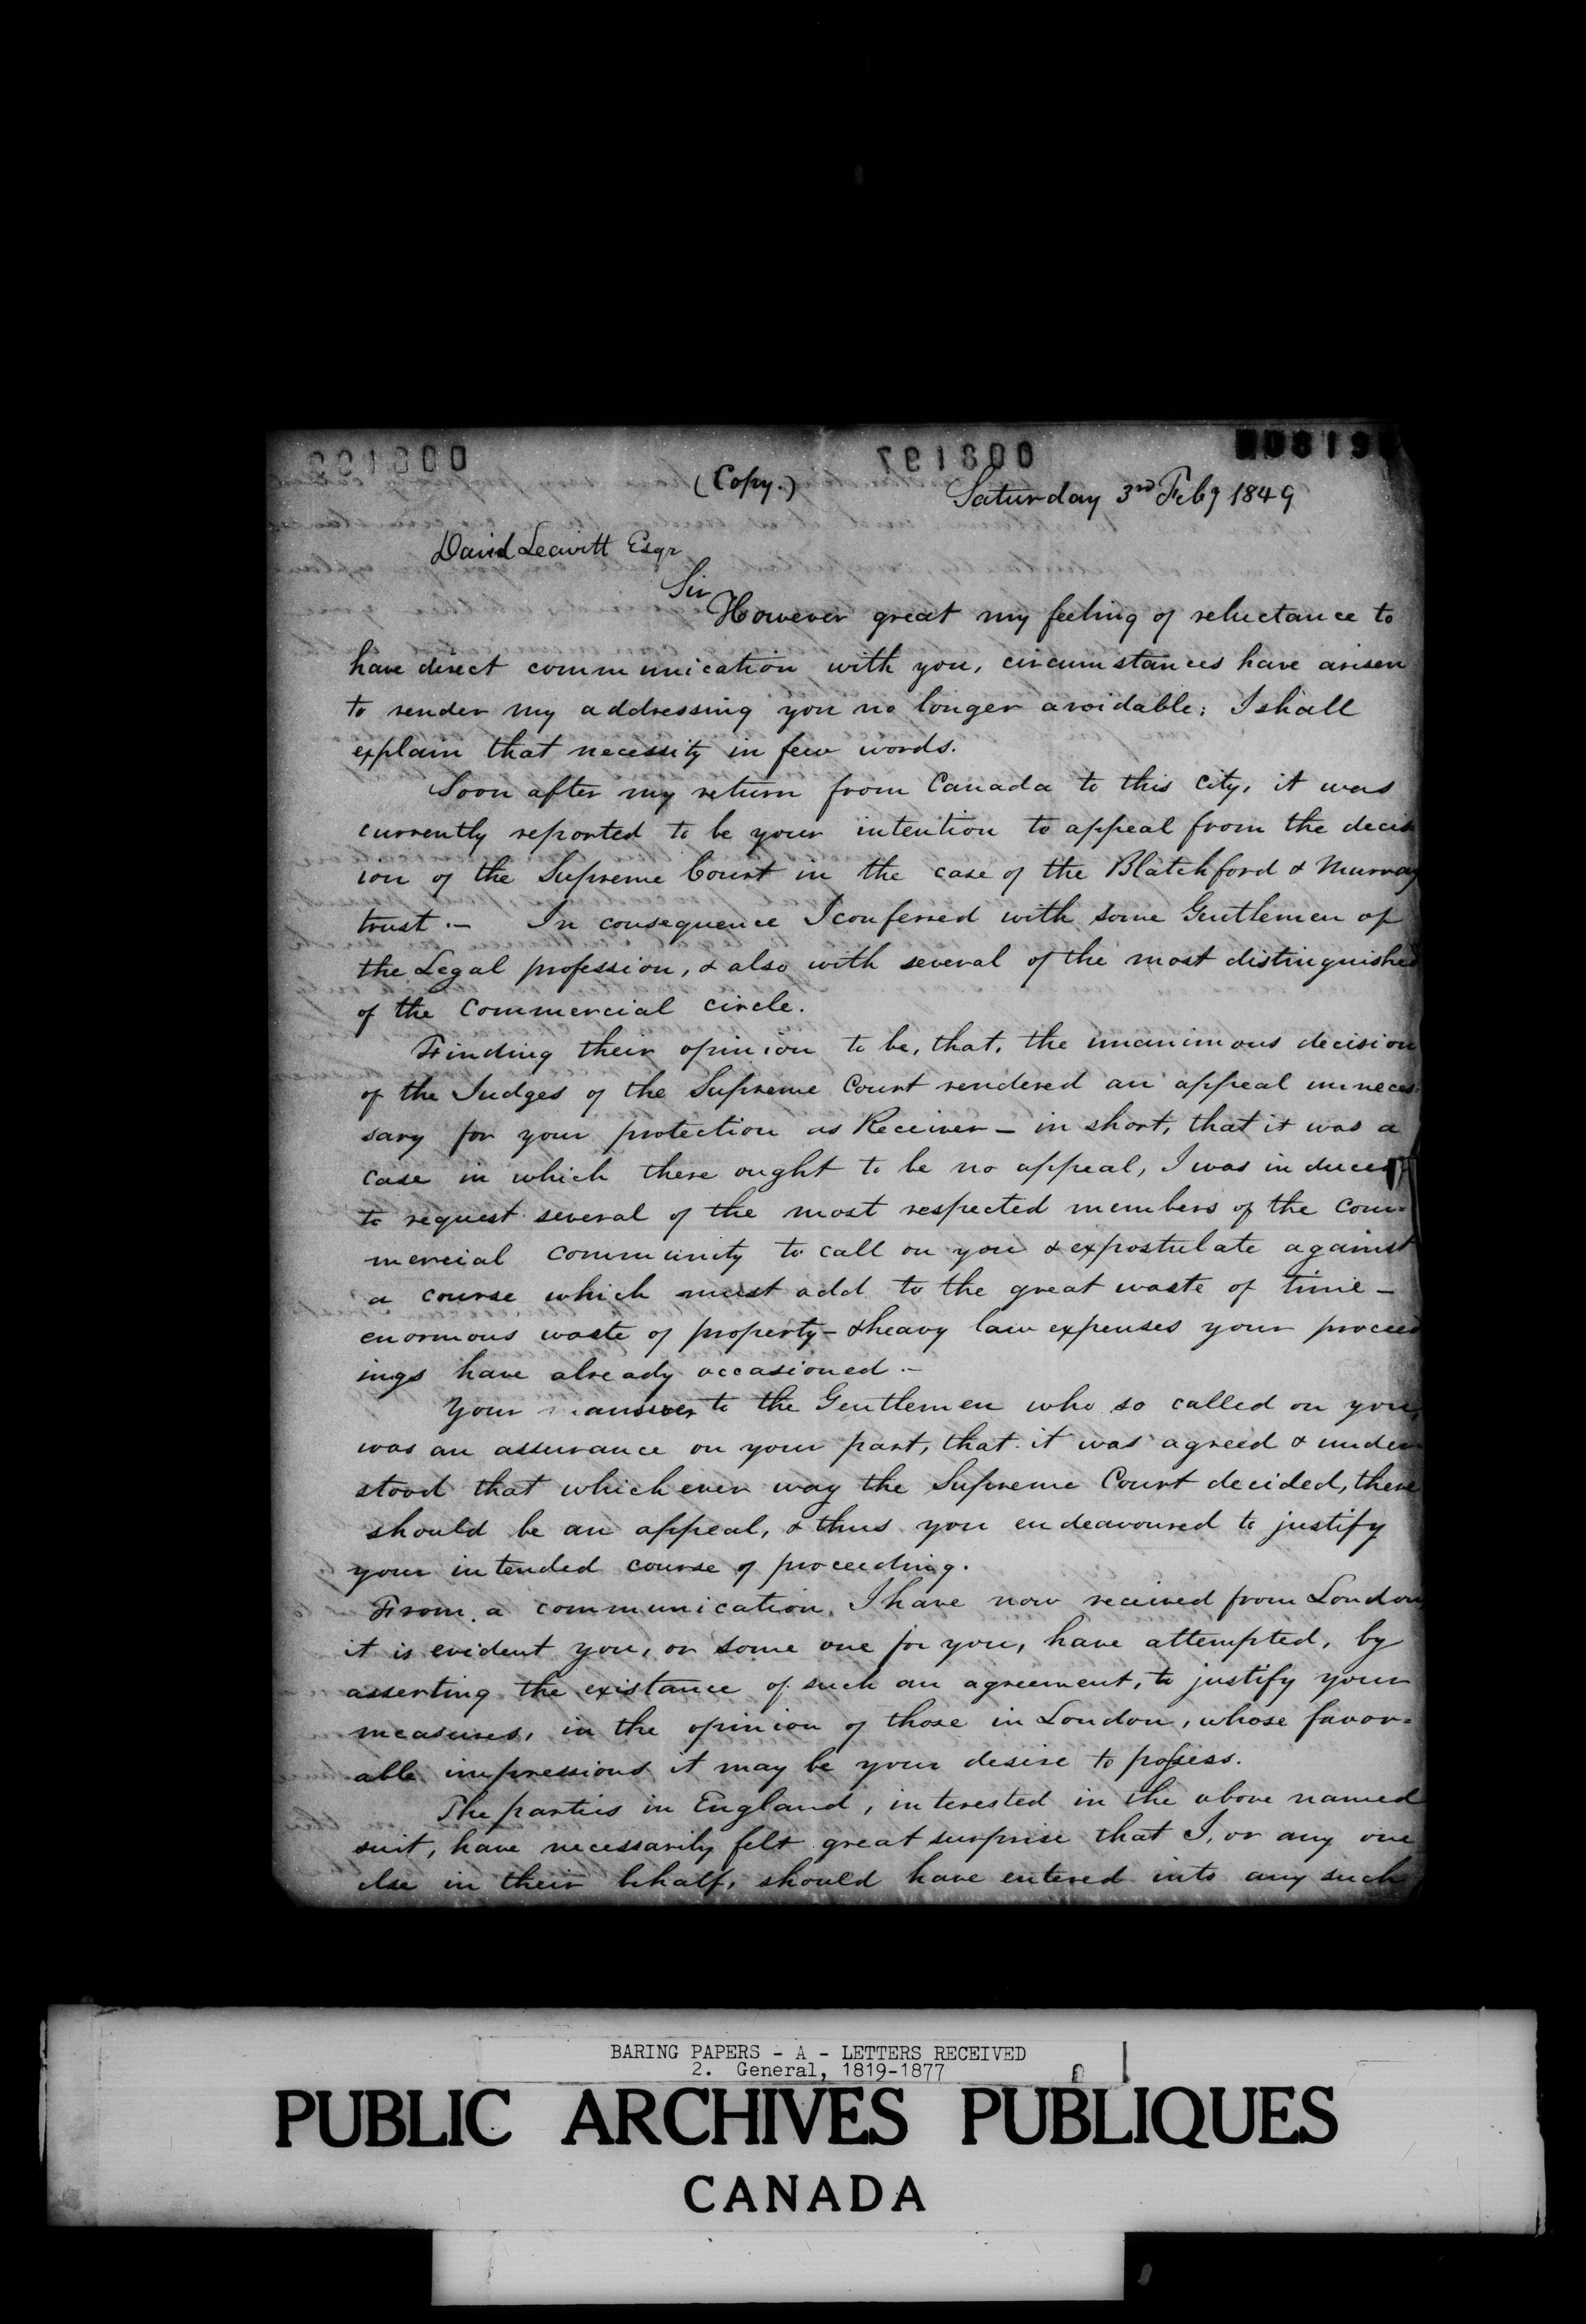 (Copy.)
Saturday 3rd Feby 1849
David Leavitt Esqr
Sir
However great my feeling of reluctance to
have direct communication with you, circumstances have arisen
to render my addressing you no longer avoidable; I shall
explain that necessity in few words.
Soon after my return from Canada to this city, it was
currently reported to be your intention to appeal from the decis
ion of the Supreme Court in the case of the Blatchford & Murray
trust.— In consequence I conferred with some Gentlemen of
the Legal profession, & also with several of the most distinguished
of the Commercial circle.
Finding their opinion to be, that, the unanimous decision
of the Judges of the Supreme Court rendered an appeal unneces-
sary for your protection as Receiver — in short, that it was a
case in which there ought to be no appeal, I was induced
to request several of the most respected members of the Com-
mercial community to call on you & expostulate against
a course which must add to the great waste of time —
enormous waste of property — & heavy law expenses your proceed
ings have already occasioned.—
Your answer to the Gentlemen who so called on you,
was an assurance on your part, that it was agreed & under
stood that which ever way the Supreme Court decided, there
should be an appeal, & thus you endeavoured to justify
your intended course of proceeding.
From a communication, I have now received from London,
it is evident you, or some one for you, have attempted, by
asserting the existance of such an agreement, to justify your
measures, in the opinion of those in London, whose favor=
able impressions it may be your desire to possess.
The parties in England, interested in the above named
suit, have necessarily felt great surprise that I, or any one
else in their behalf, should have entered into any such
BARING PAPERS - A - LETTERS RECEIVED
2. General, 1819-1877
PUBLIC ARCHIVES PUBLIQUES
CANADA